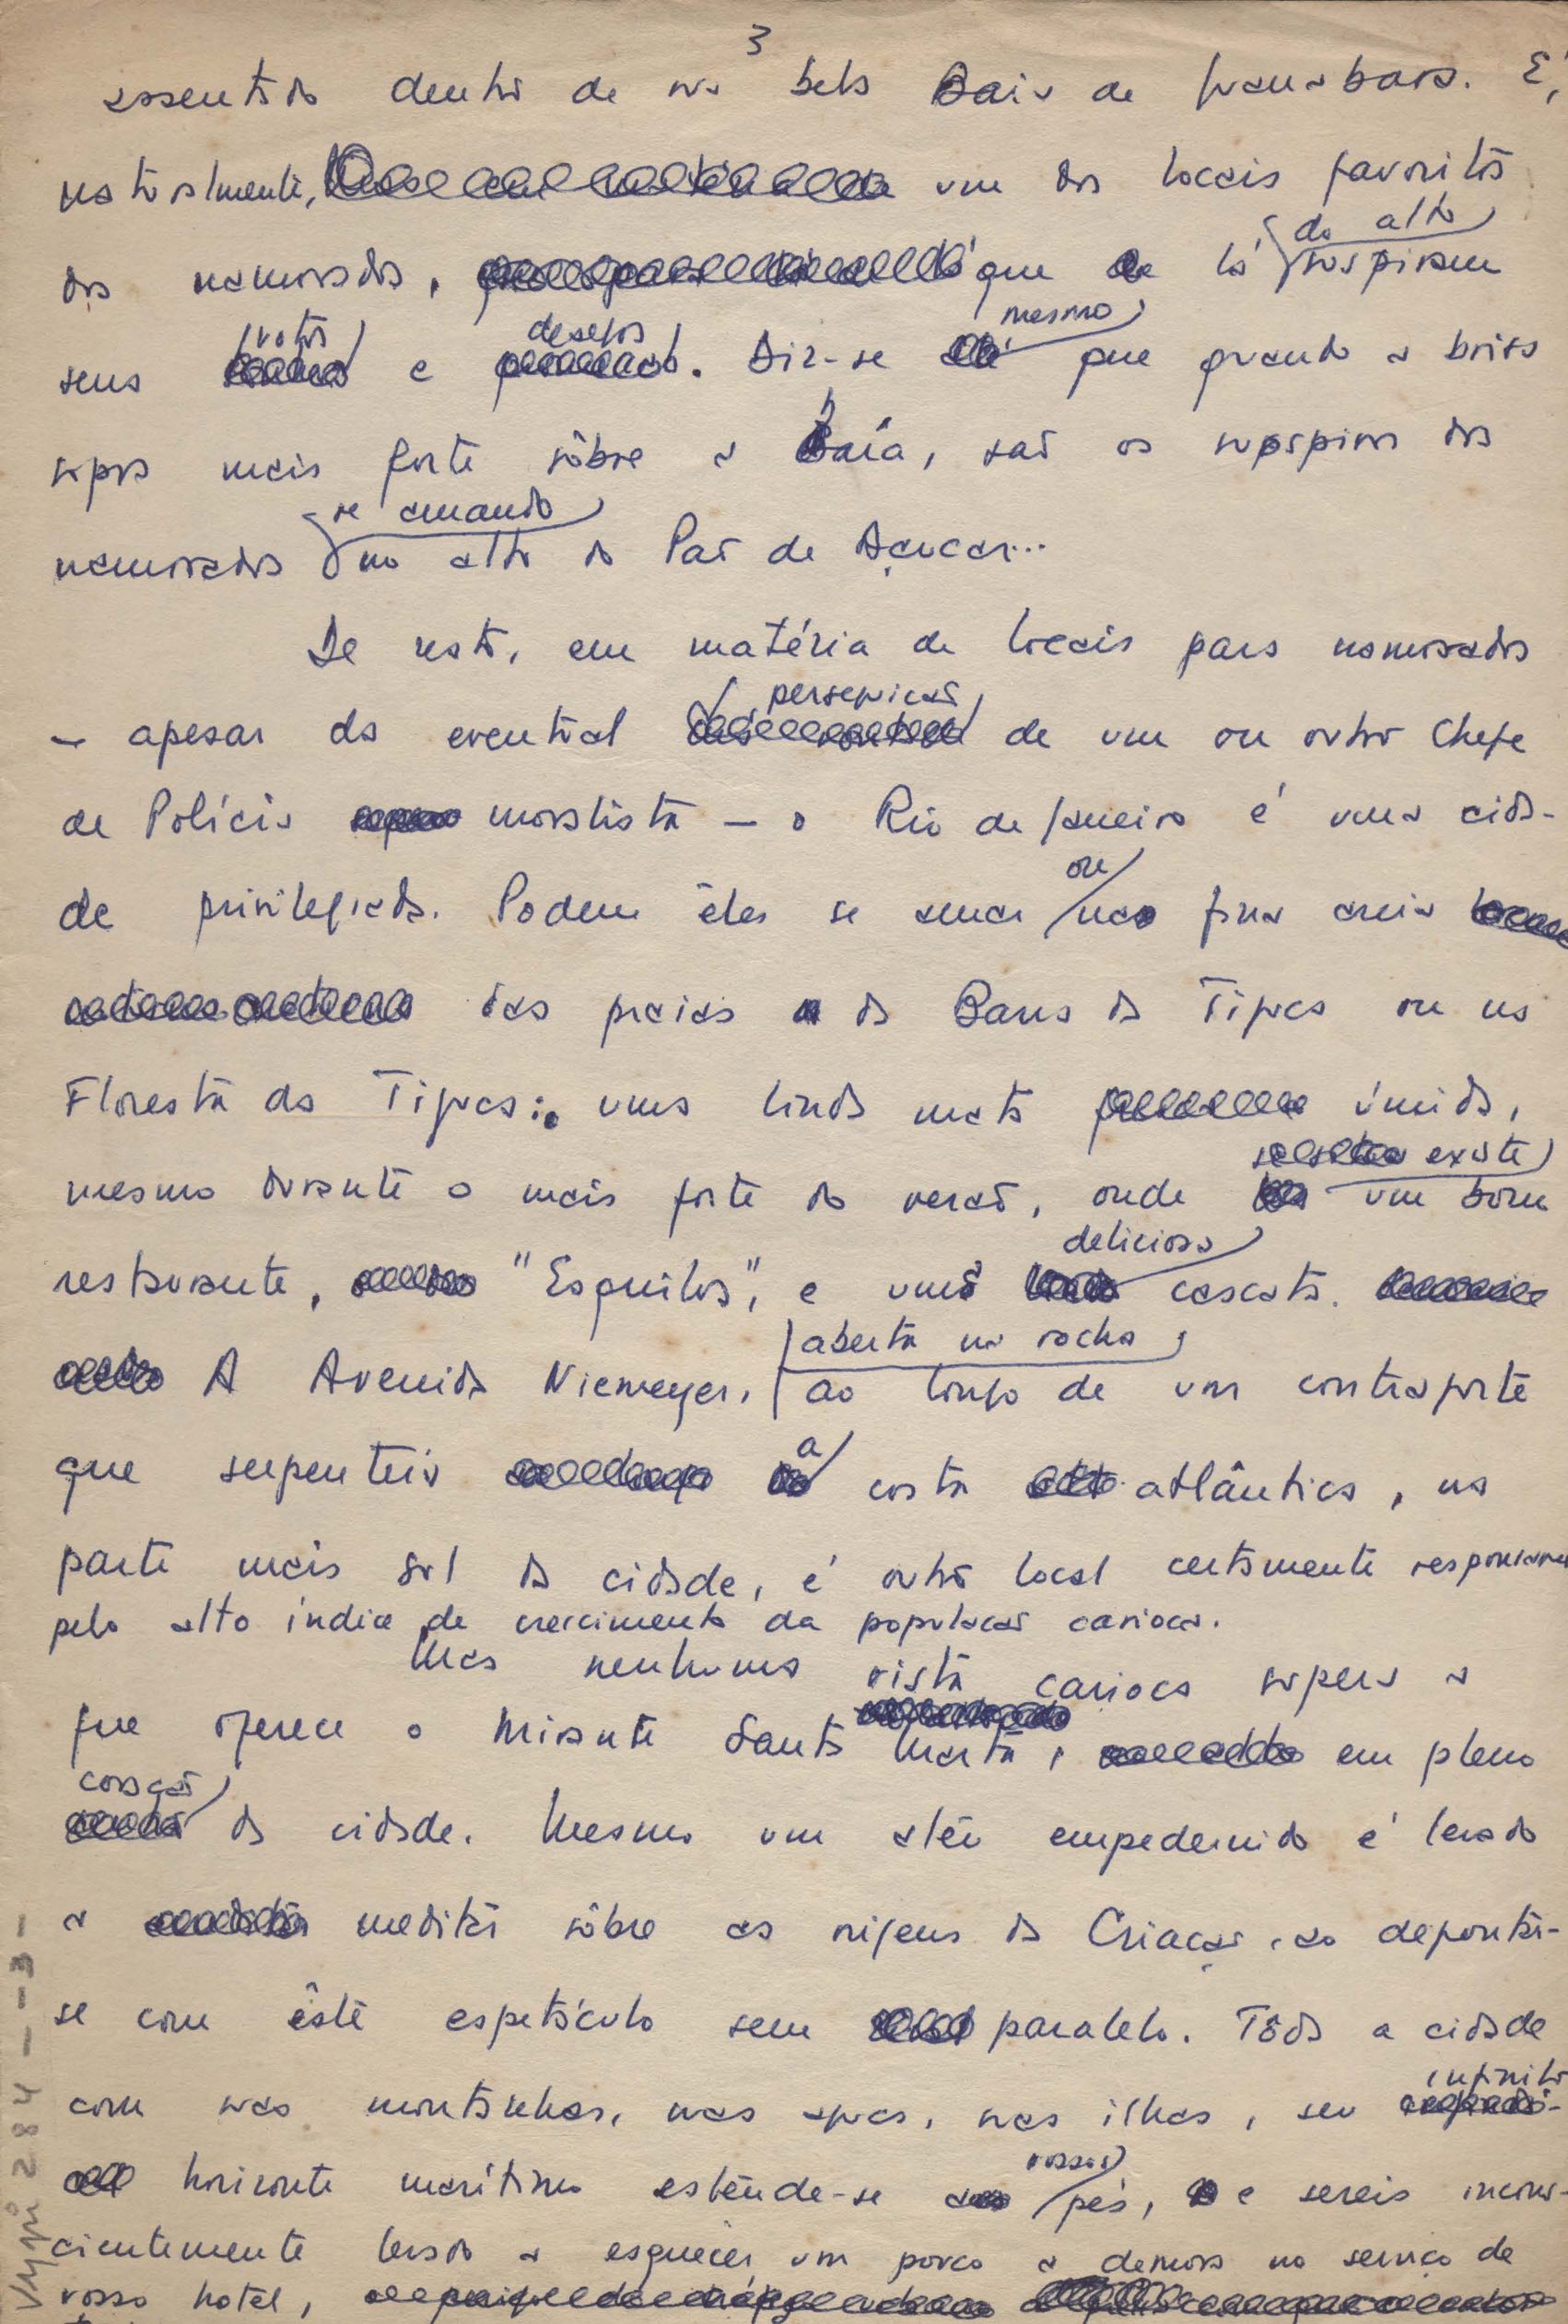 3
assentado dentro de sua bela Baia de Guanabara. É,
naturalmente, um dos locais favoritos
dos namorados, que de lá do alto suspiram
seus votos e desejos. Diz-se mesmo que quando a brisa
sopra mais forte sôbre a baía, são os suspiros dos
namorados se amando no alto do Pão de Açucar...
De resto, em matéria de locais para namorados
– apesar da eventual perseguição de um ou outro Chefe
de Polícia moralista – o Rio de Janeiro é uma cida-
de privilegiada. Podem êles se amar ou na fina areia
das praias da Barra da Tijuca ou na
Floresta da Tijuca: uma linda mata úmida,
mesmo durante o mais forte do verão, onde existe um bom
restaurante, "Esquilos", e uma deliciosa cascata.
A Avenida Niemeyer, aberta na rocha ao longo de um contraforte
que serpenteia a costa atlântica, na
parte mais sul da cidade, é outro local certamente responsavel
pelo alto índice de crescimento da população carioca.
Mas nenhuma vista carioca supera a
que oferece o Mirante Santa Marta, em pleno
coração da cidade. Mesmo um atêu empedernido é levado
a meditar sôbre as origens da Criação, ao defrontar-
se com êste espetáculo sem paralelo. Tôda a cidade
com suas montanhas, suas aguas, suas ilhas, seu infinito
horizonte marítimo estende-se a vossos pés, e sereis incons-
cientemente levado a esquecer um pouco a demora no serviço de
vosso hotel,
VMpi 284 - - 3 -